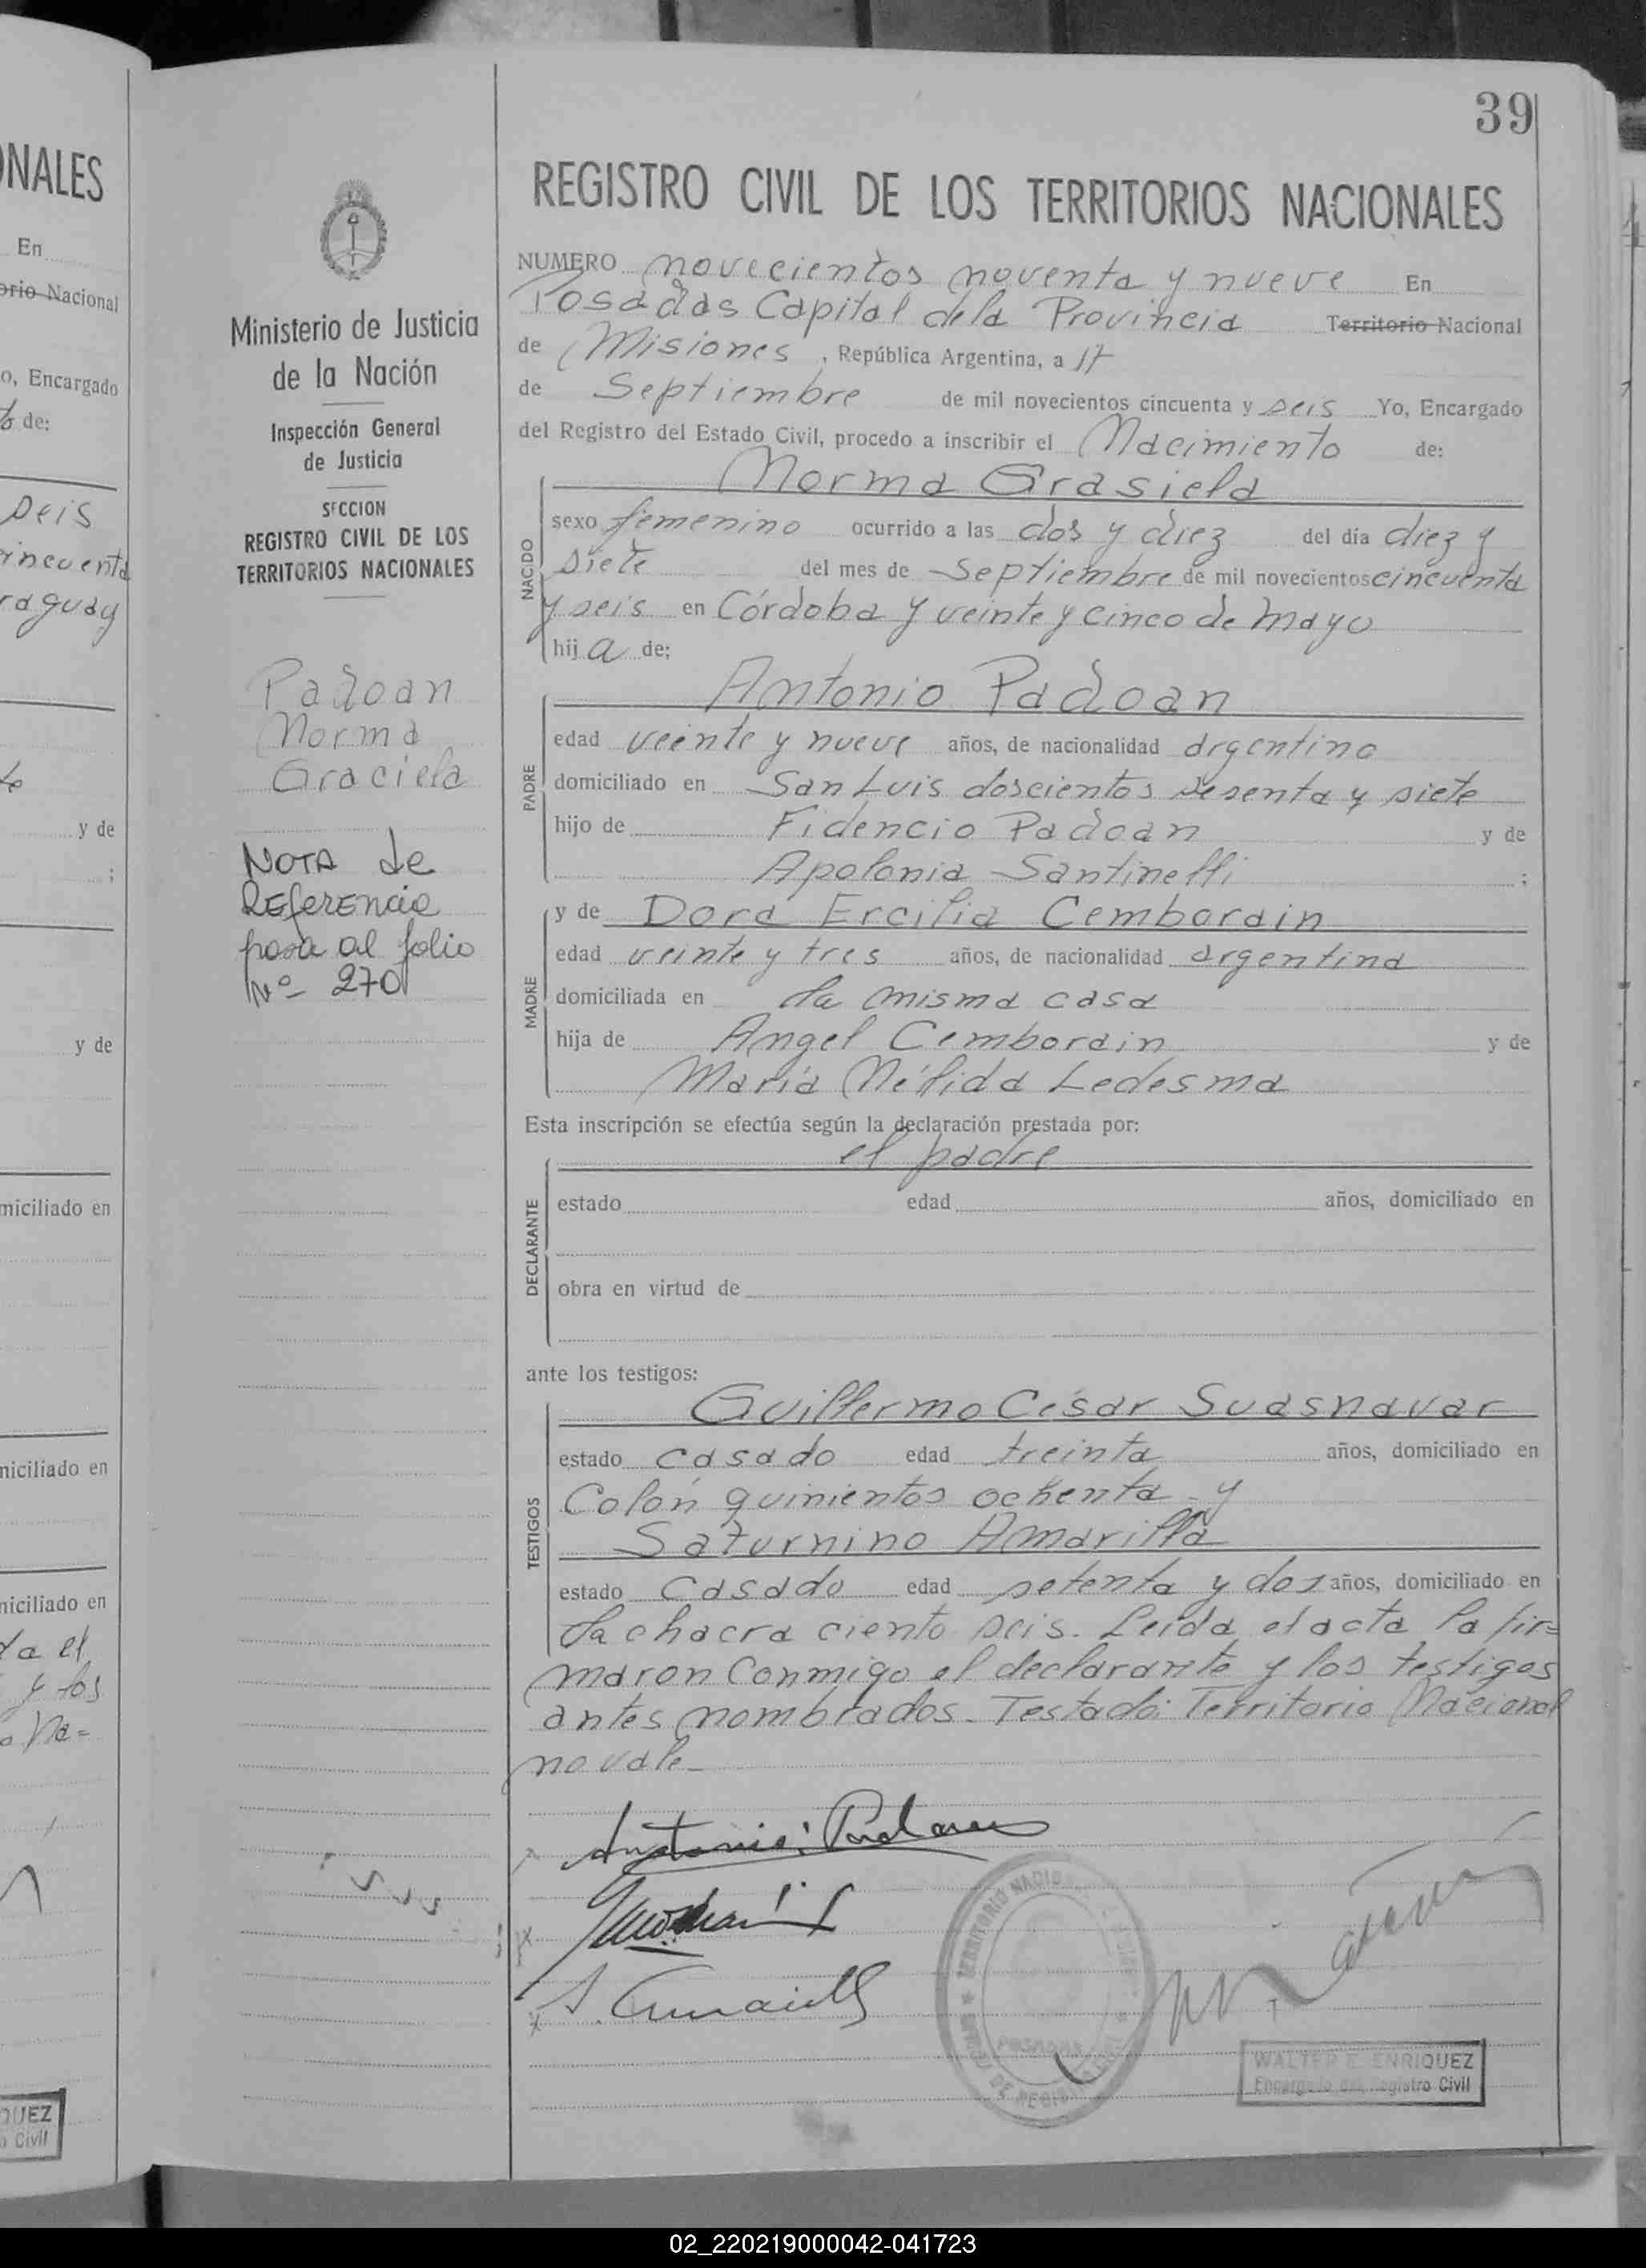 39
REGISTRO CIVIL DE LOS TERRITORIOS NACIONALES
NUMERO novecientos noventa y nueve En
Posadas Capital de la Provincia Territorio Nacional
de Misiones, República Argentina, a 17
de Septiembre de mil novecientos cincuenta y seis Yo, Encargado
del Registro del Estado Civil, procedo a inscribir el Nacimiento de:
Norma Grasiela
NACIDO
sexo femenino ocurrido a las dos y diez del día diez y
siete del mes de Septiembre de mil novecientos cincuenta
y seis en Córdoba y veinte y cinco de mayo
hija de:
Antonio Padoan
PADRE
edad veinte y nueve años, de nacionalidad argentino
domiciliado en San Luis doscientos sesenta y siete
hijo de Fidencio Padoan y de
Apolonia Santinelli ;
y de Dora Ercilia Cembordin
MADRE
edad veinte y tres años, de nacionalidad argentina
domiciliada en la misma casa
hija de Angel Cembordin y de
María Nélida Ledesma
Esta inscripción se efectúa según la declaración prestada por:
el padre
DECLARANTE
estado edad años, domiciliado en
obra en virtud de
ante los testigos:
Guillermo César Suasnavar
TESTIGOS
estado casado edad treinta años, domiciliado en
Colón quinientos ochenta y
Saturnino Amarilla
estado casado edad setenta y dos años, domiciliado en
La chacra ciento seis. Leida el acta la fir=
maron conmigo el declarante y los testigos
antes nombrados. Testado: Territorio Nacional
no vale
Antonio Padoan
WALTER E. ENRIQUEZ
Encargado del Registro Civil
Ministerio de Justicia
de la Nación
Inspección General
de Justicia
SECCION
REGISTRO CIVIL DE LOS
TERRITORIOS NACIONALES
Padoan
Norma
Graciela
NOTA de
REFERENCIA
pasa al folio
Nº 270
ONALES
En
orio Nacional
o, Encargado
de:
seis
cincuenta
raguay
y de
;
y de
miciliado en
niciliado en
niciliado en
ta el
y los
o Na=
QUEZ
Civil
02_220219000042-041723